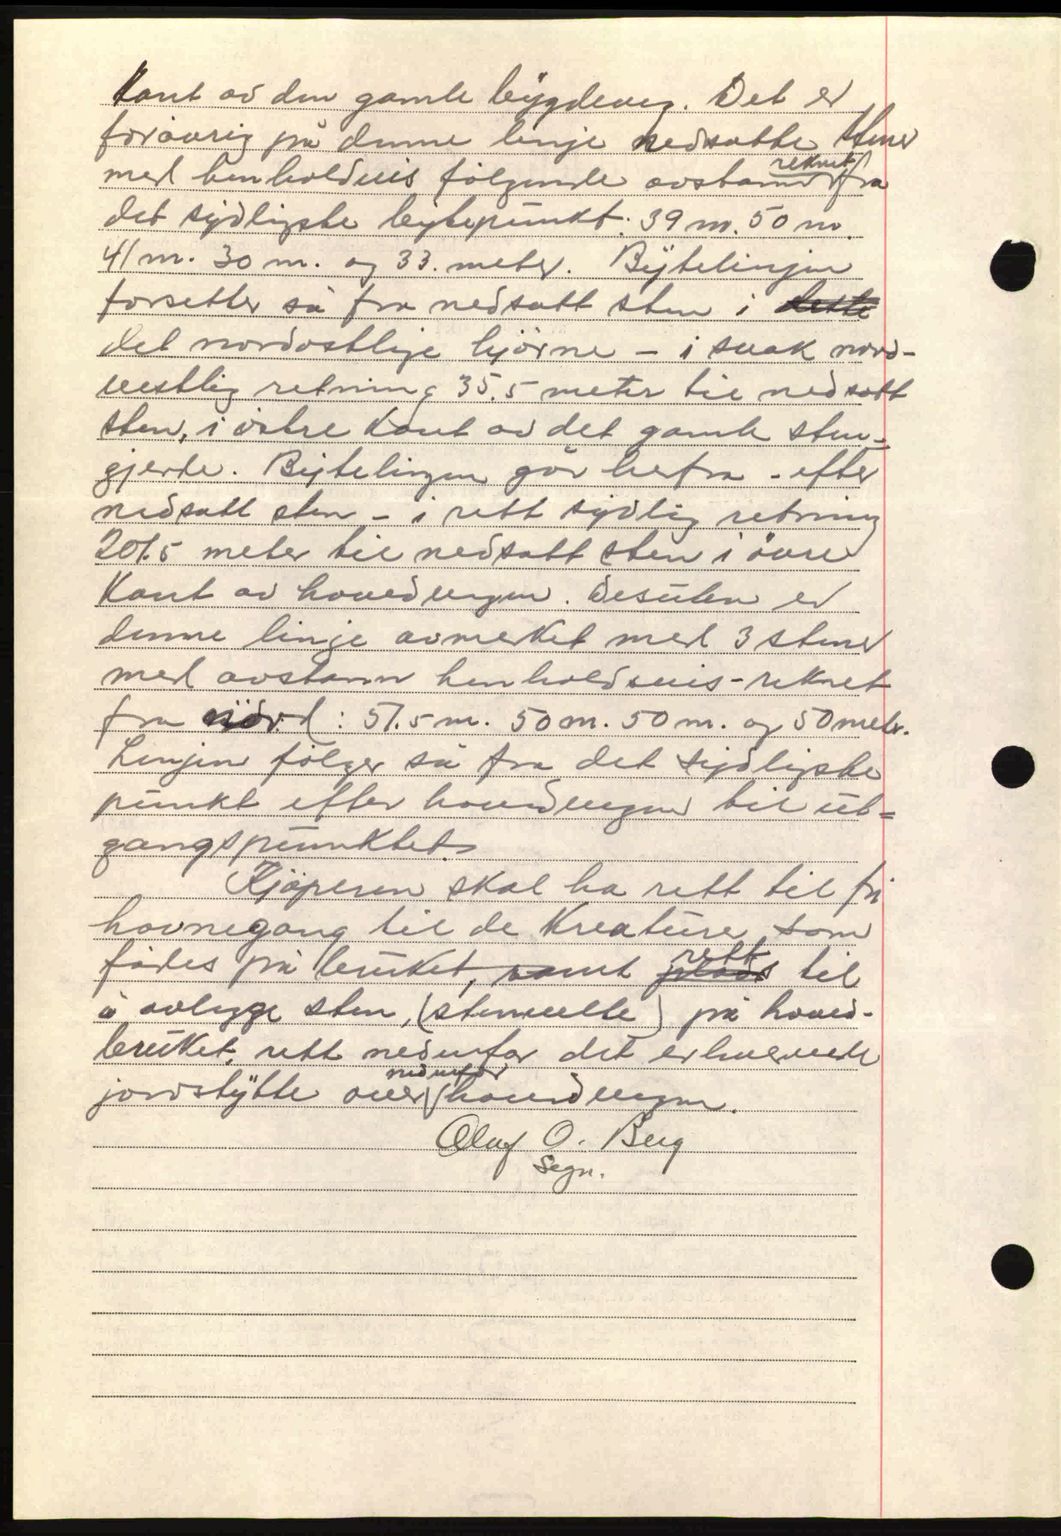 Kant av den gamle bygdeveg. Det er
forøvrig på denne linje nedsatte stener
med henholdsvis følgende avstand reknet fra
det sydligste bytepunkt: 39 m. 50 m.
41 m. 30 m. og 33. meter. Bytelinjen
forsetter så fra nedsatt sten i dette
det nordøstlige hjörne – i svak nord-
vestlig retning 35.5 meter til nedsatt
sten, i vestre Kant av det gamle sten-
gjerde. Bytelinjen går herfra – efter
nedsatt sten – i rett sydlig retning
201.5 meter til nedsatt sten i övre
Kant av hovedvegen. Desuten er
denne linje avmerket med 3 stener
med avstann henholdsvis – reknet
fra nord: 51.5 m. 50 m. 50 m. og 50 meter.
Linjen følger så fra det sydligste
punkt efter hovedvegen til ut-
gangspunktet.
Kjöperen skal ha rett til fri
havnegang til de Kreature som
fødes på bruket, samt rett til
å avlegge sten, (stenvelte) på hoved-
bruket, rett nedenfor det erhvervede
jordstykke over nedenfor hovedvegen.
Oluf O. Berg
Segn.